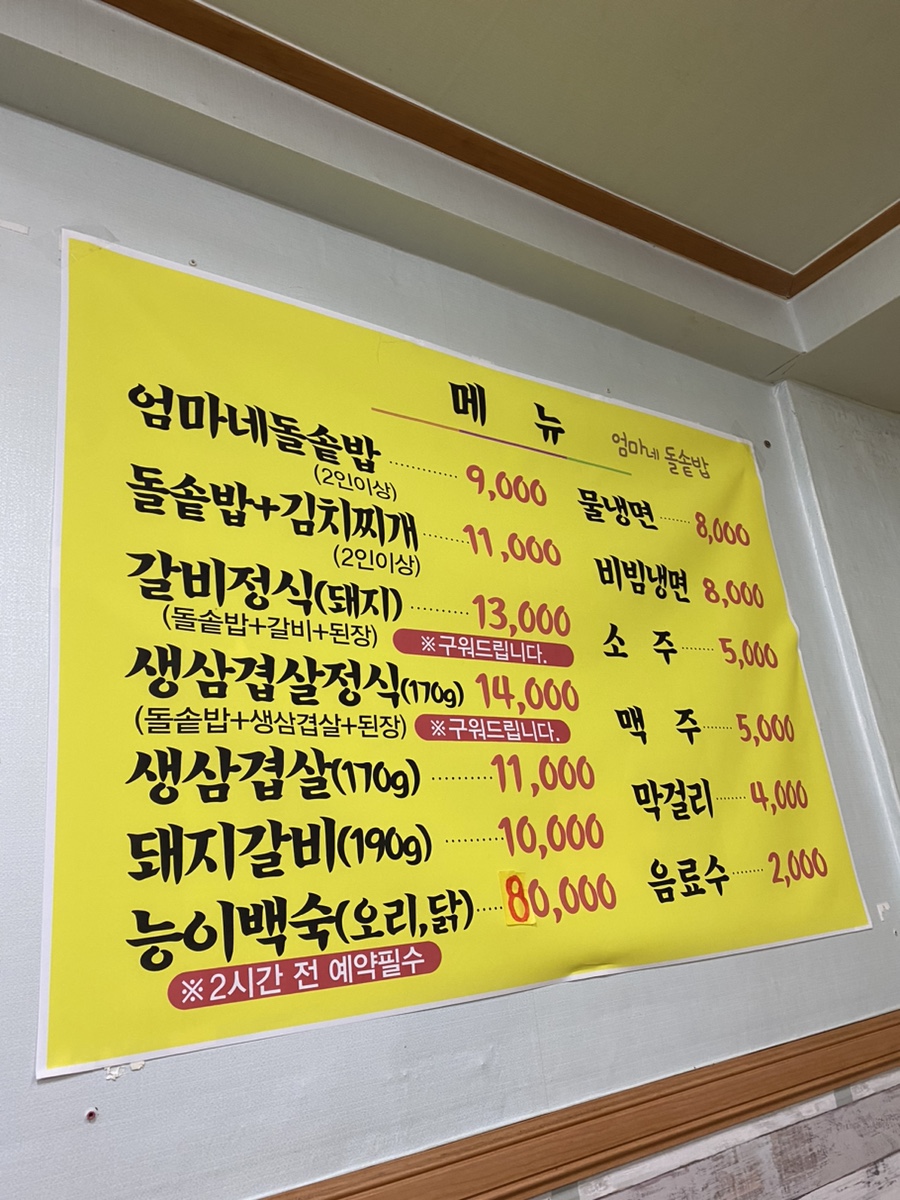 메 뉴
엄마네 돌솥밥
엄마네돌솥밥 ········· 9,000
(2인이상)
돌솥밥+김치찌개 ······ 11,000
(2인이상)
갈비정식(돼지) ········· 13,000
(돌솥밥+갈비+된장) ※구워드립니다.
생삼겹살정식(170g) 14,000
(돌솥밥+생삼겹살+된장) ※구워드립니다.
생삼겹살(170g) ········· 11,000
돼지갈비(190g) ········· 10,000
능이백숙(오리,닭) ···· 80,000
※2시간 전 예약필수
물냉면 ······ 8,000
비빔냉면 8,000
소 주 ······ 5,000
맥 주 ····· 5,000
막걸리 ······ 4,000
음료수 ······ 2,000